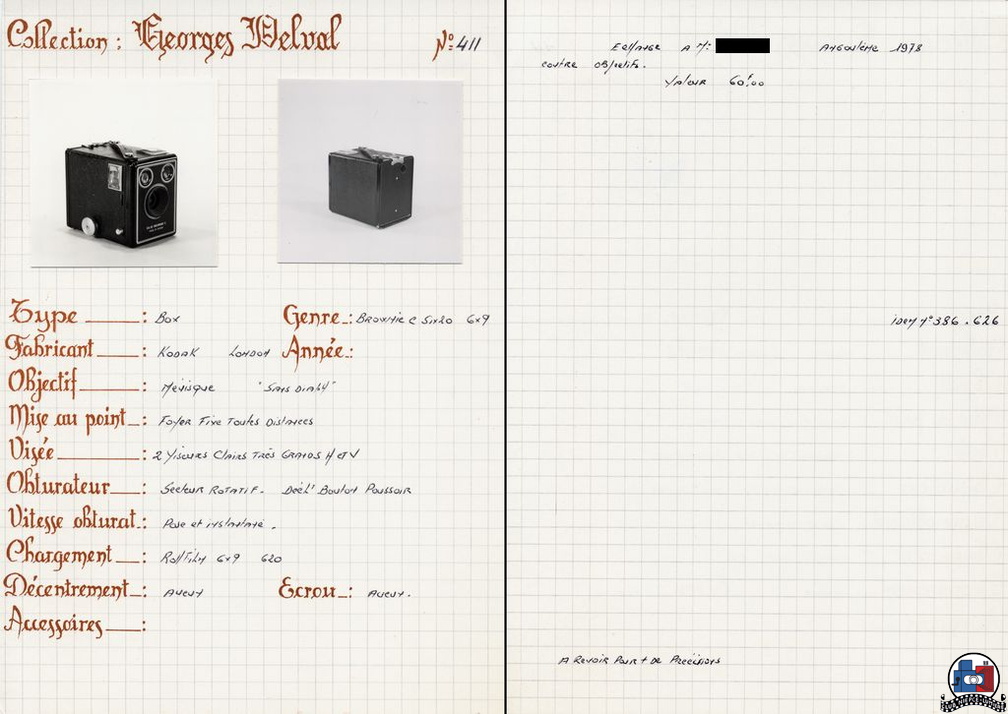 Collection : Georges Delval Nº 411
Type : Box
Genre : Brownie C Six20 6x9
Fabricant : Kodak London
Année :
Objectif : Ménisque "Sans Diaph"
Mise au point : Foyer Fixe Toutes Distances
Visée : 2 Viseurs Clairs Très Grands H et V
Obturateur : Secteur Rotatif. Décl! Bouton Poussoir
Vitesse obturat : Pose et instantané.
Chargement : Rollfilm 6x9 620
Décentrement : Aucun
Ecrou : Aucun.
Accessoires :
Echange A Mr Angoulême 1978
contre objectifs.
Valeur 60f,00
idem nº 386 . 626
A Revoir Pour + de Précisions